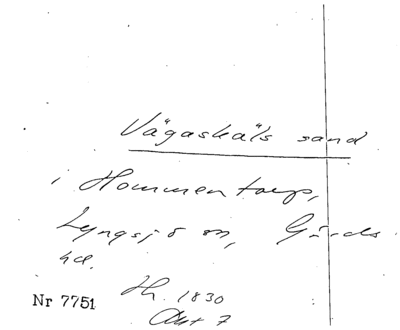 Vägaskäls sand
i Hommentorp,
Lyngsjö sn, Gärds
hd.
Nr 7751 Hh. 1830
Akt 7